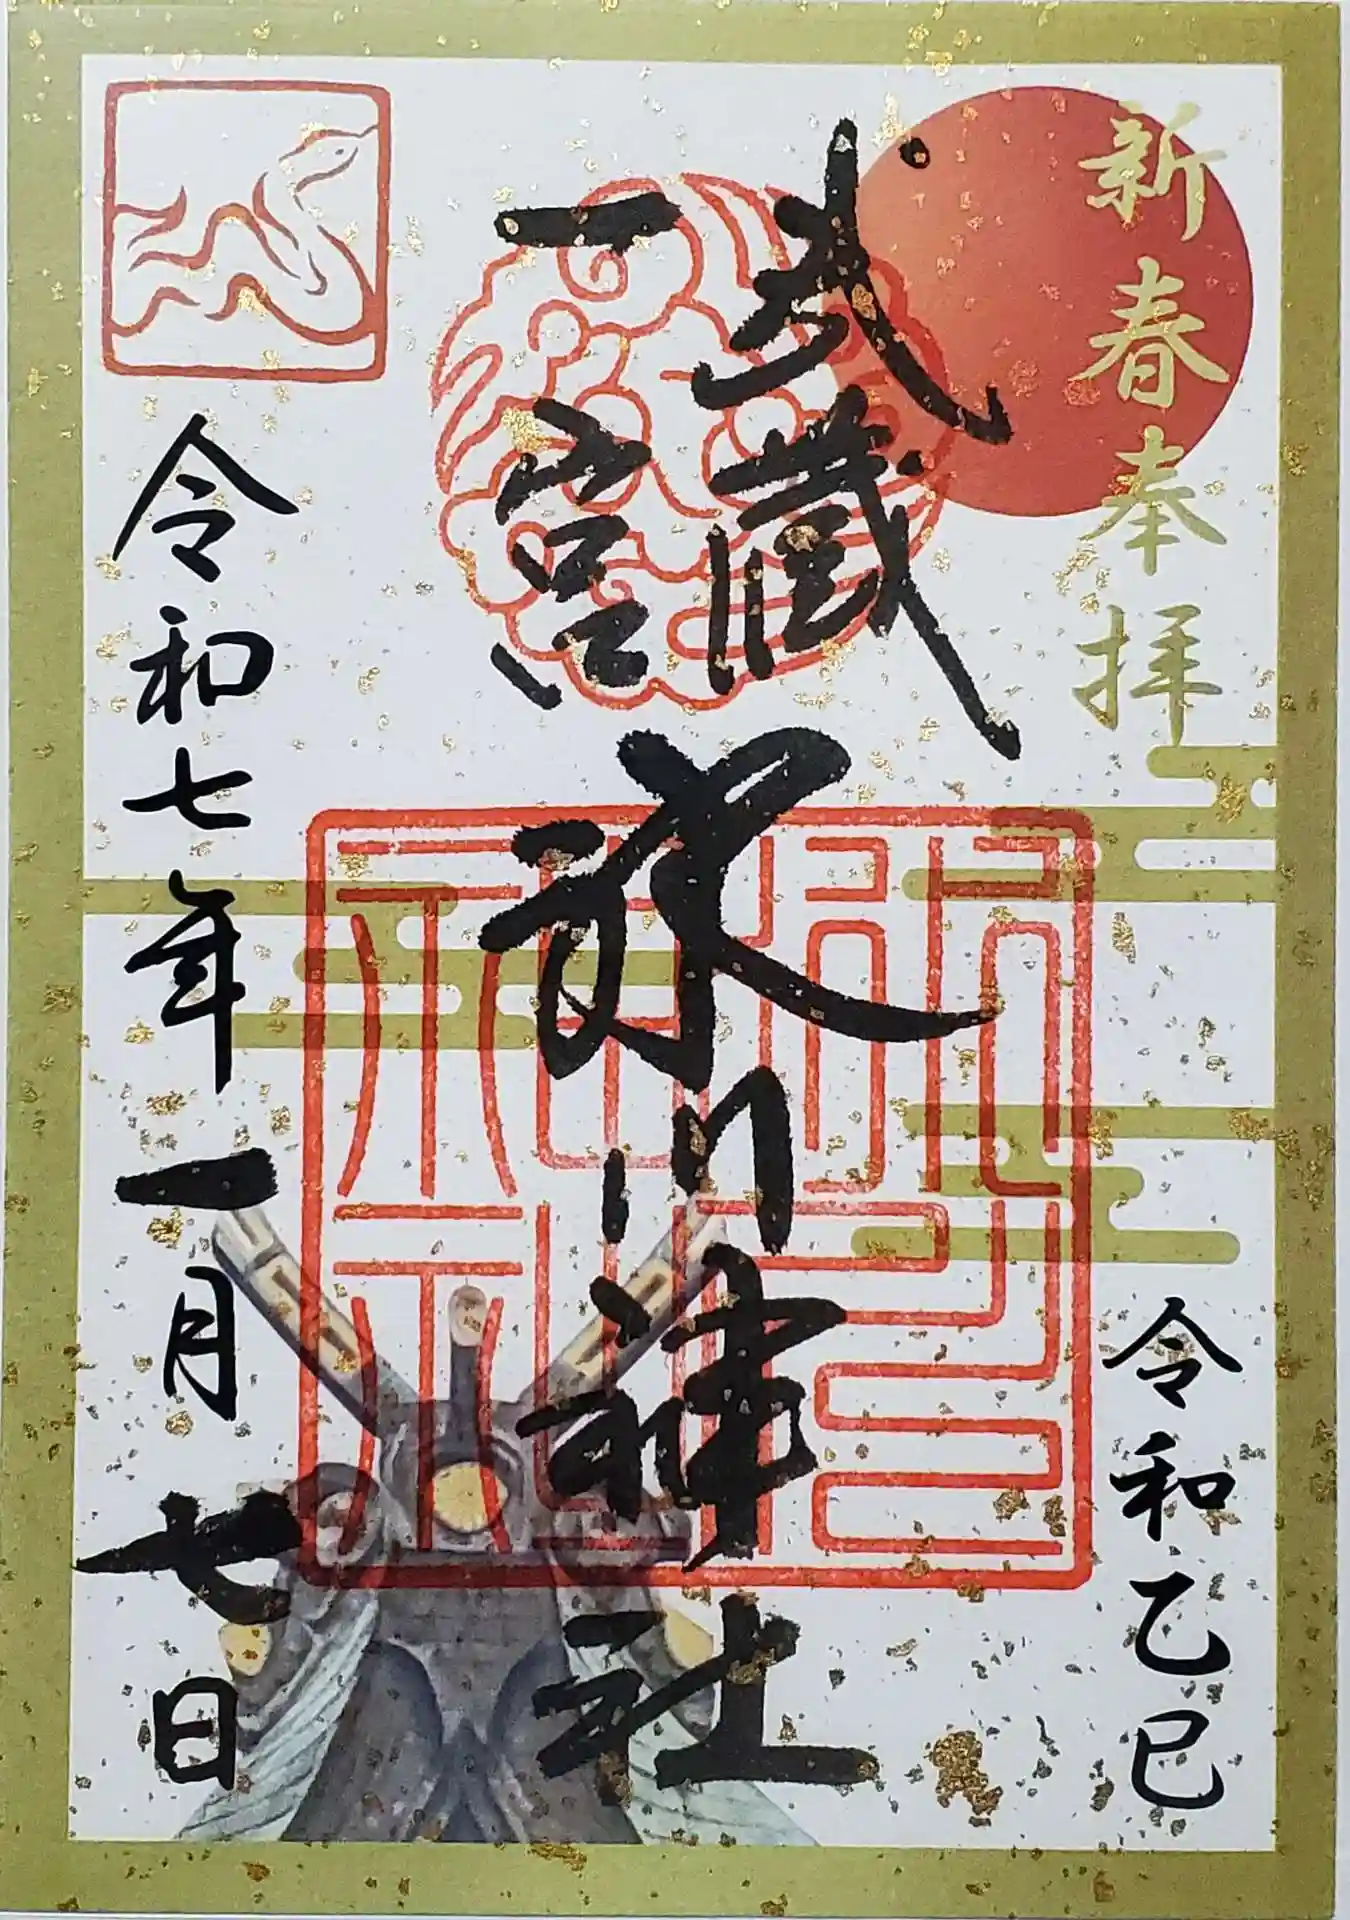 新春奉拝
令和乙巳
武蔵
一宮
氷川神社
令和七年一月七日